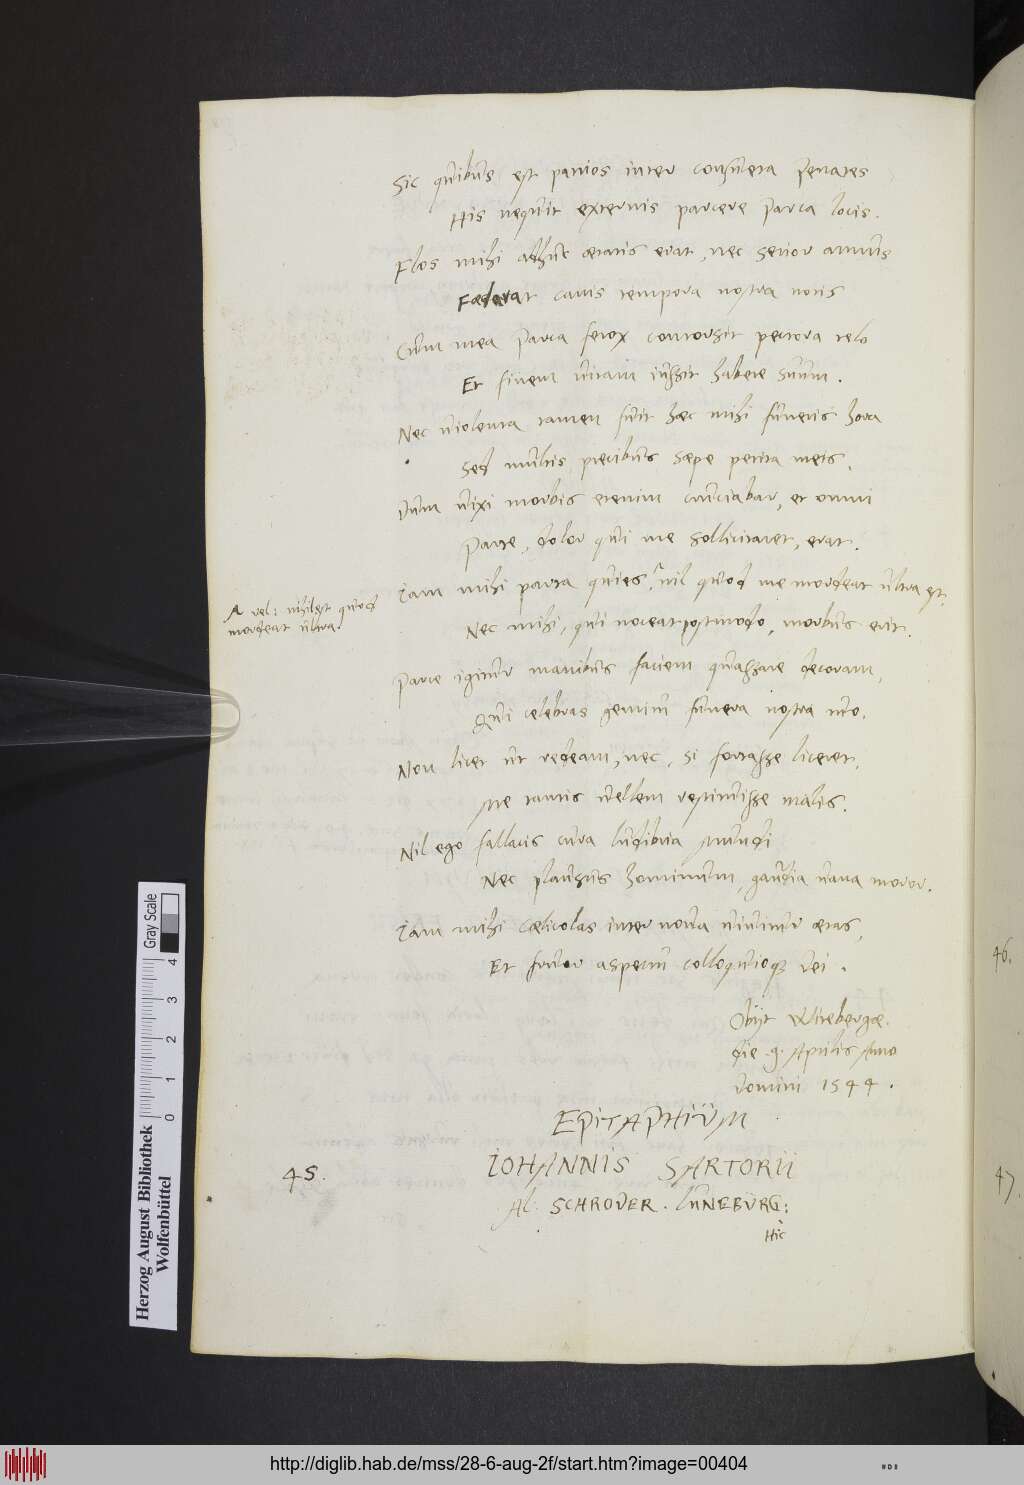 Sic quibus est patrios inter consueta penates
His nequit externis parcere Parca locis.
Flos mihi adhuc aetatis erat, nec senior annus
Foederat canis tempora nostra notis
Cum mea Parca ferox contorsit pectora telo
Et finem vitam iussit habere suum.
Nec violenta tamen fuit haec mihi funeris hora
Sed multis precibus saepe petita meis.
Dum vixi morbis etenim cruciabar, et omni
Parte, dolor qui me sollicitaret, erat.
Iam mihi parta quies, nil quod me mordeat ultra est,
vel: nihil est quod
mordeat ultra.
Nec mihi, qui noceat postmodo, morbus erit.
Parce igitur manibus faciem quassare decoram,
Qui celebras gemitu funera nostra tuo.
Non licet ut redeam, nec, si fortasse liceret,
Me tantis vellem restituisse malis.
Nil ego fallacis cura ludibria Mundi
Nec plausus hominum, gaudia vana moror.
Iam mihi caelicolas inter nova vivitur aetas,
Et fruor aspectu colloquioque Dei.
Obijt Witebergae.
die 9. Aprilis Anno
Domini 1544.
EPITAPHIUM
IOHANNIS SARTORII
Al. SCHRODER. LUNEBURG:
Hic
45.
46.
47.
Gray Scale
0 1 2 3 4
Herzog August Bibliothek
Wolfenbüttel
http://diglib.hab.de/mss/28-6-aug-2f/start.htm?image=00404